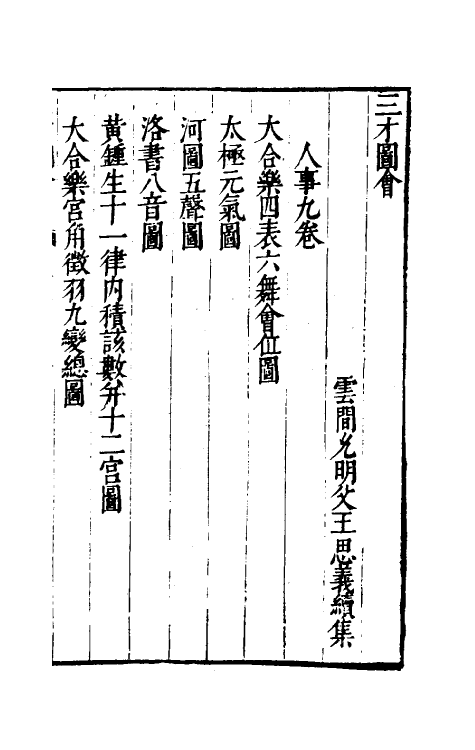 三才圖會
雲間允明父王思義續集
人事九卷
大合樂四表六舞會位圖
太極元氣圖
河圖五聲圖
洛書八音圖
黃鍾生十一律内積該數分十二宫圖
大合樂宮角徵羽九變總圖